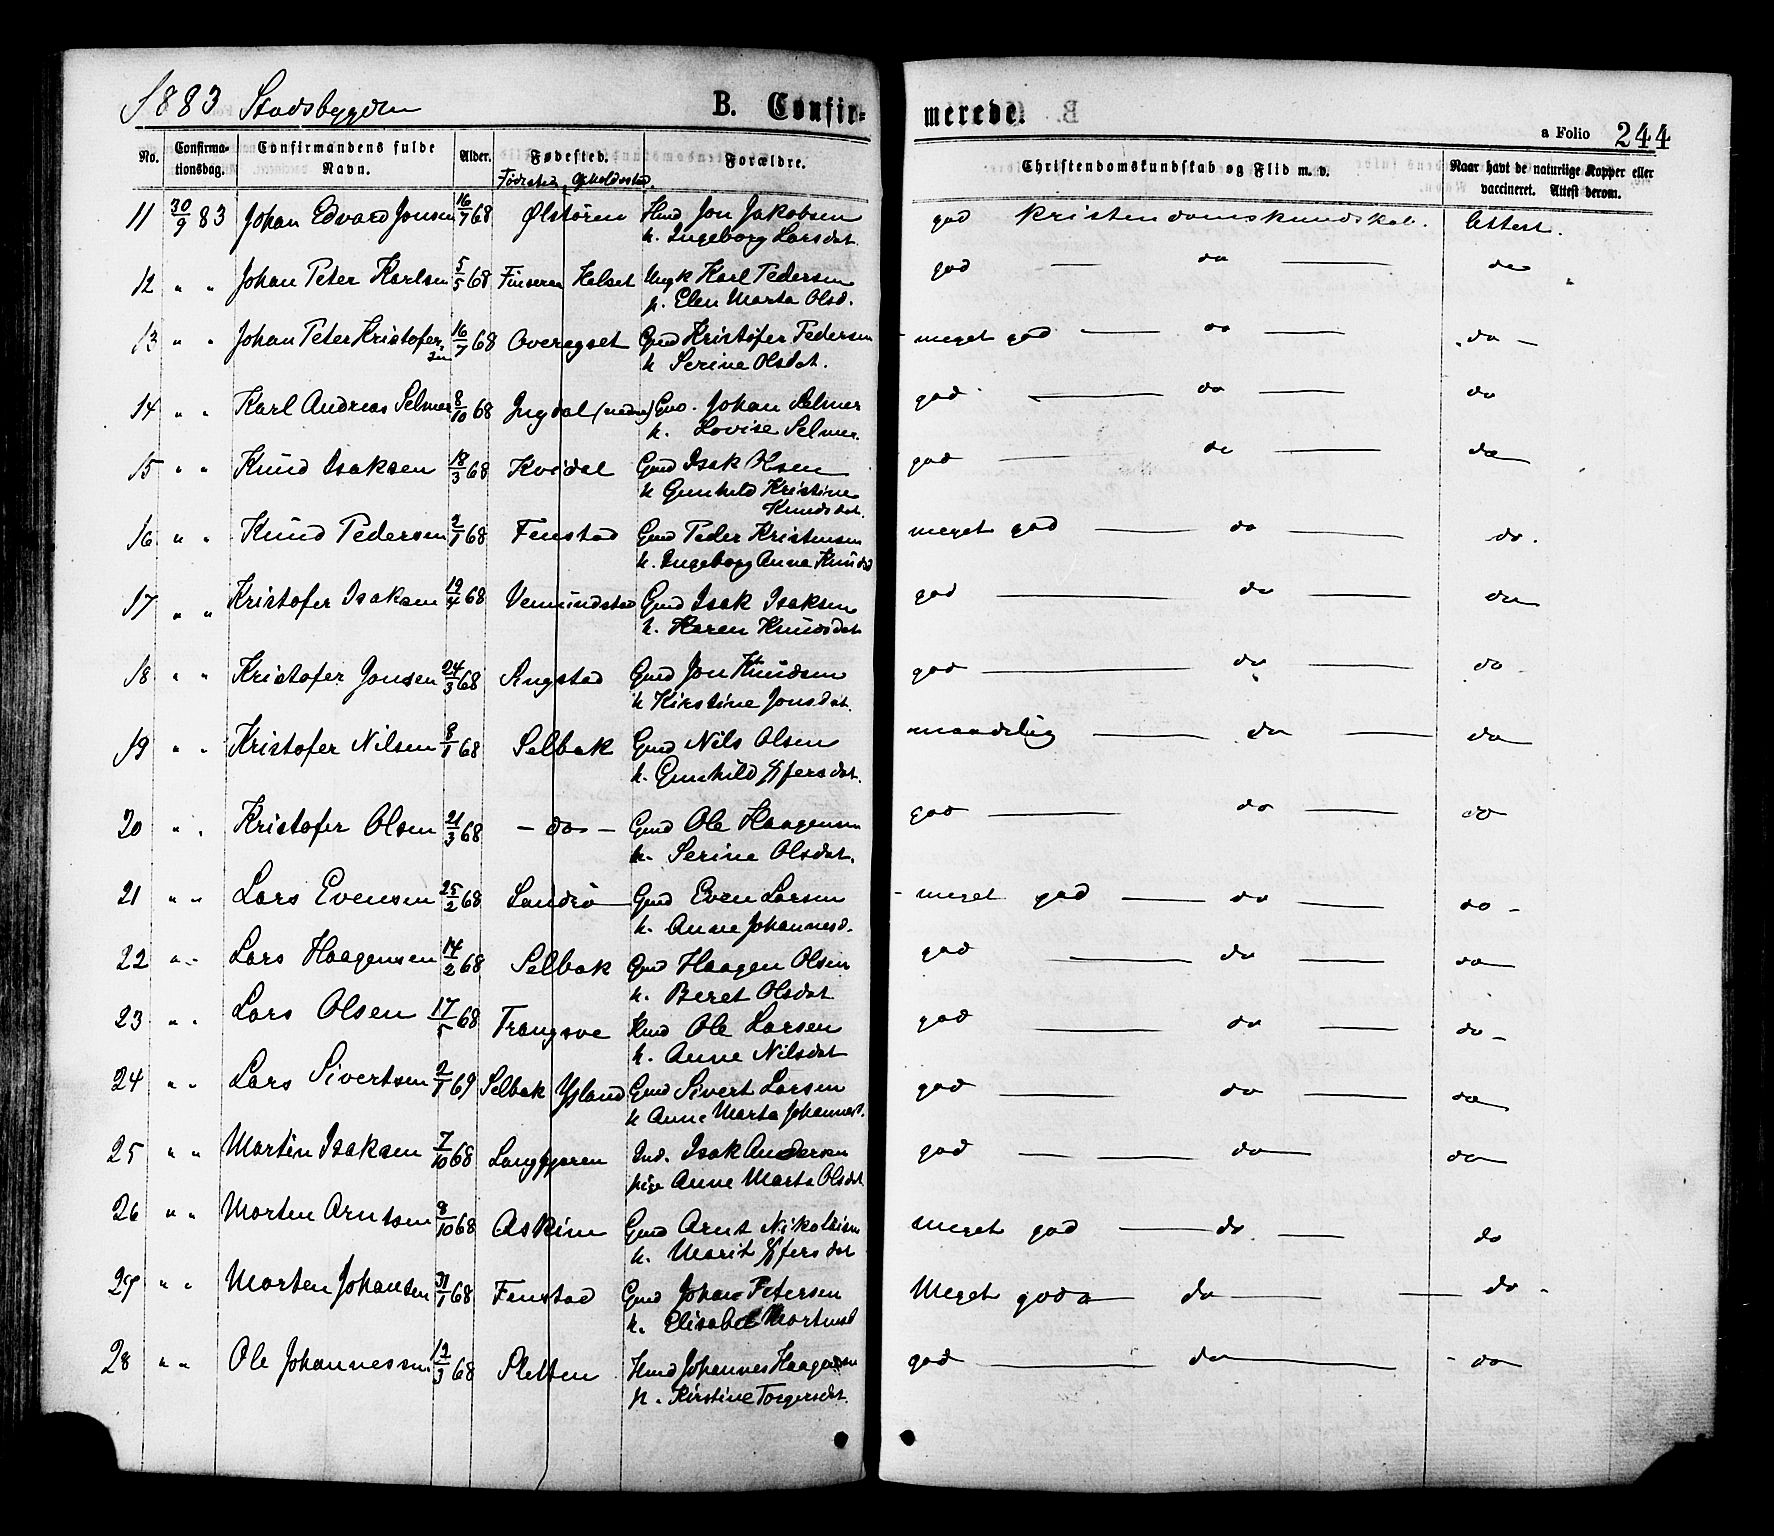 1883 Stadsbygden B. Confir-
merede.
a Folio 244
No. Confirma-tionsdag. Confirmandens fulde Navn. Alder. Fødested. Forældre. Christendomskundskab og Flid m. v. Naar havt de naturlige Kopper eller vaccineret. Attest derom.
Fødested Opholdssted.
11 30/9 83 Johan Edvard Jonsen 16/7 68 Ølstøren Hmd Jon Jakobsen god kristendomskundskab. Attest.
h. Ingeborg Larsdat.
12 " " Johan Peter Karlsen 5/5 68 Finseraa Halset Ungk Karl Pedersen god — do — do "
p. Elen Marta Olsd.
13 " " Johan Peter Kristofersen 16/7 68 Overegset Gmd Kristofer Pedersen - meget god — do — do —
h Serine Olsdat.
14 " " Karl Andreas Selmer 8/10 68 Ingdal (nedre) Gmd. Johan Selmer god — do — do
h. Lovise Selmer.
15 " " Knud Isaksen 18/3 68 Kvidal Gmd Isak Olsen god — do — do
h Gunhild Kristine
Knudsdat.
16 " " Knud Pedersen 2/1 68 Fenstad Gmd Peder Kristensen meget god — do — do.
h. Ingeborg Anna Knudsd
17 " " Kristofer Isaksen 19/4 68 Vemundstad Gmd Isak Isaksen god — do — do
h. Karen Knudsdat
18 " " Kristofer Jonsen 24/3 68 Ringstad Gmd Jon Knudsen god — do — do
h Kirstine Jonsdat.
19 " " Kristofer Nilsen 8/1 68 Selbak Gmd Nils Olsen maadelig — do — do
h. Gunhild Effersdat.
20 " " Kristofer Olsen 21/3 68 — do — Gmd Ole Haagensen god — do — do
h. Serine Olsdat.
21 " " Lars Evensen 25/2 68 Sandrø Gmd Even Larsen - meget god — do — do -
h. Anne Johannesd.
22 " " Lars Haagensen 14/2 68 Selbak Gmd Haagen Olsen god — do — do
h. Beret Olsdat
23 " " Lars Olsen 17/5 68 Trangsve Hmd Ole Larsen god — do — do -
h. Anne Nilsdat
24 " " Lars Sivertsen 2/1 69 Selbak Ysland Gmd Sivert Larsen god — do — do
h Anne Marta Johannesd.
25 " " Martin Isaksen 7/10 68 Isak Andersen god — do — do
pige Anne Marta Olsdat
26 " " Morten Arntsen 8/10 68 Askim Gmd Arnt Nikolaisen meget god — do. — do
h. Marit Effersdat
27 " " Morten Johansen 31/1 68 Fenstad Gmd Johan Petersen Meget god — do — do -
h. Elisabet Mortensd
28 " " Ole Johannessen 12/3 68 Sletten Hmd Johannes Haagensen god — do — - do
h. Kirstine Torgersdat.